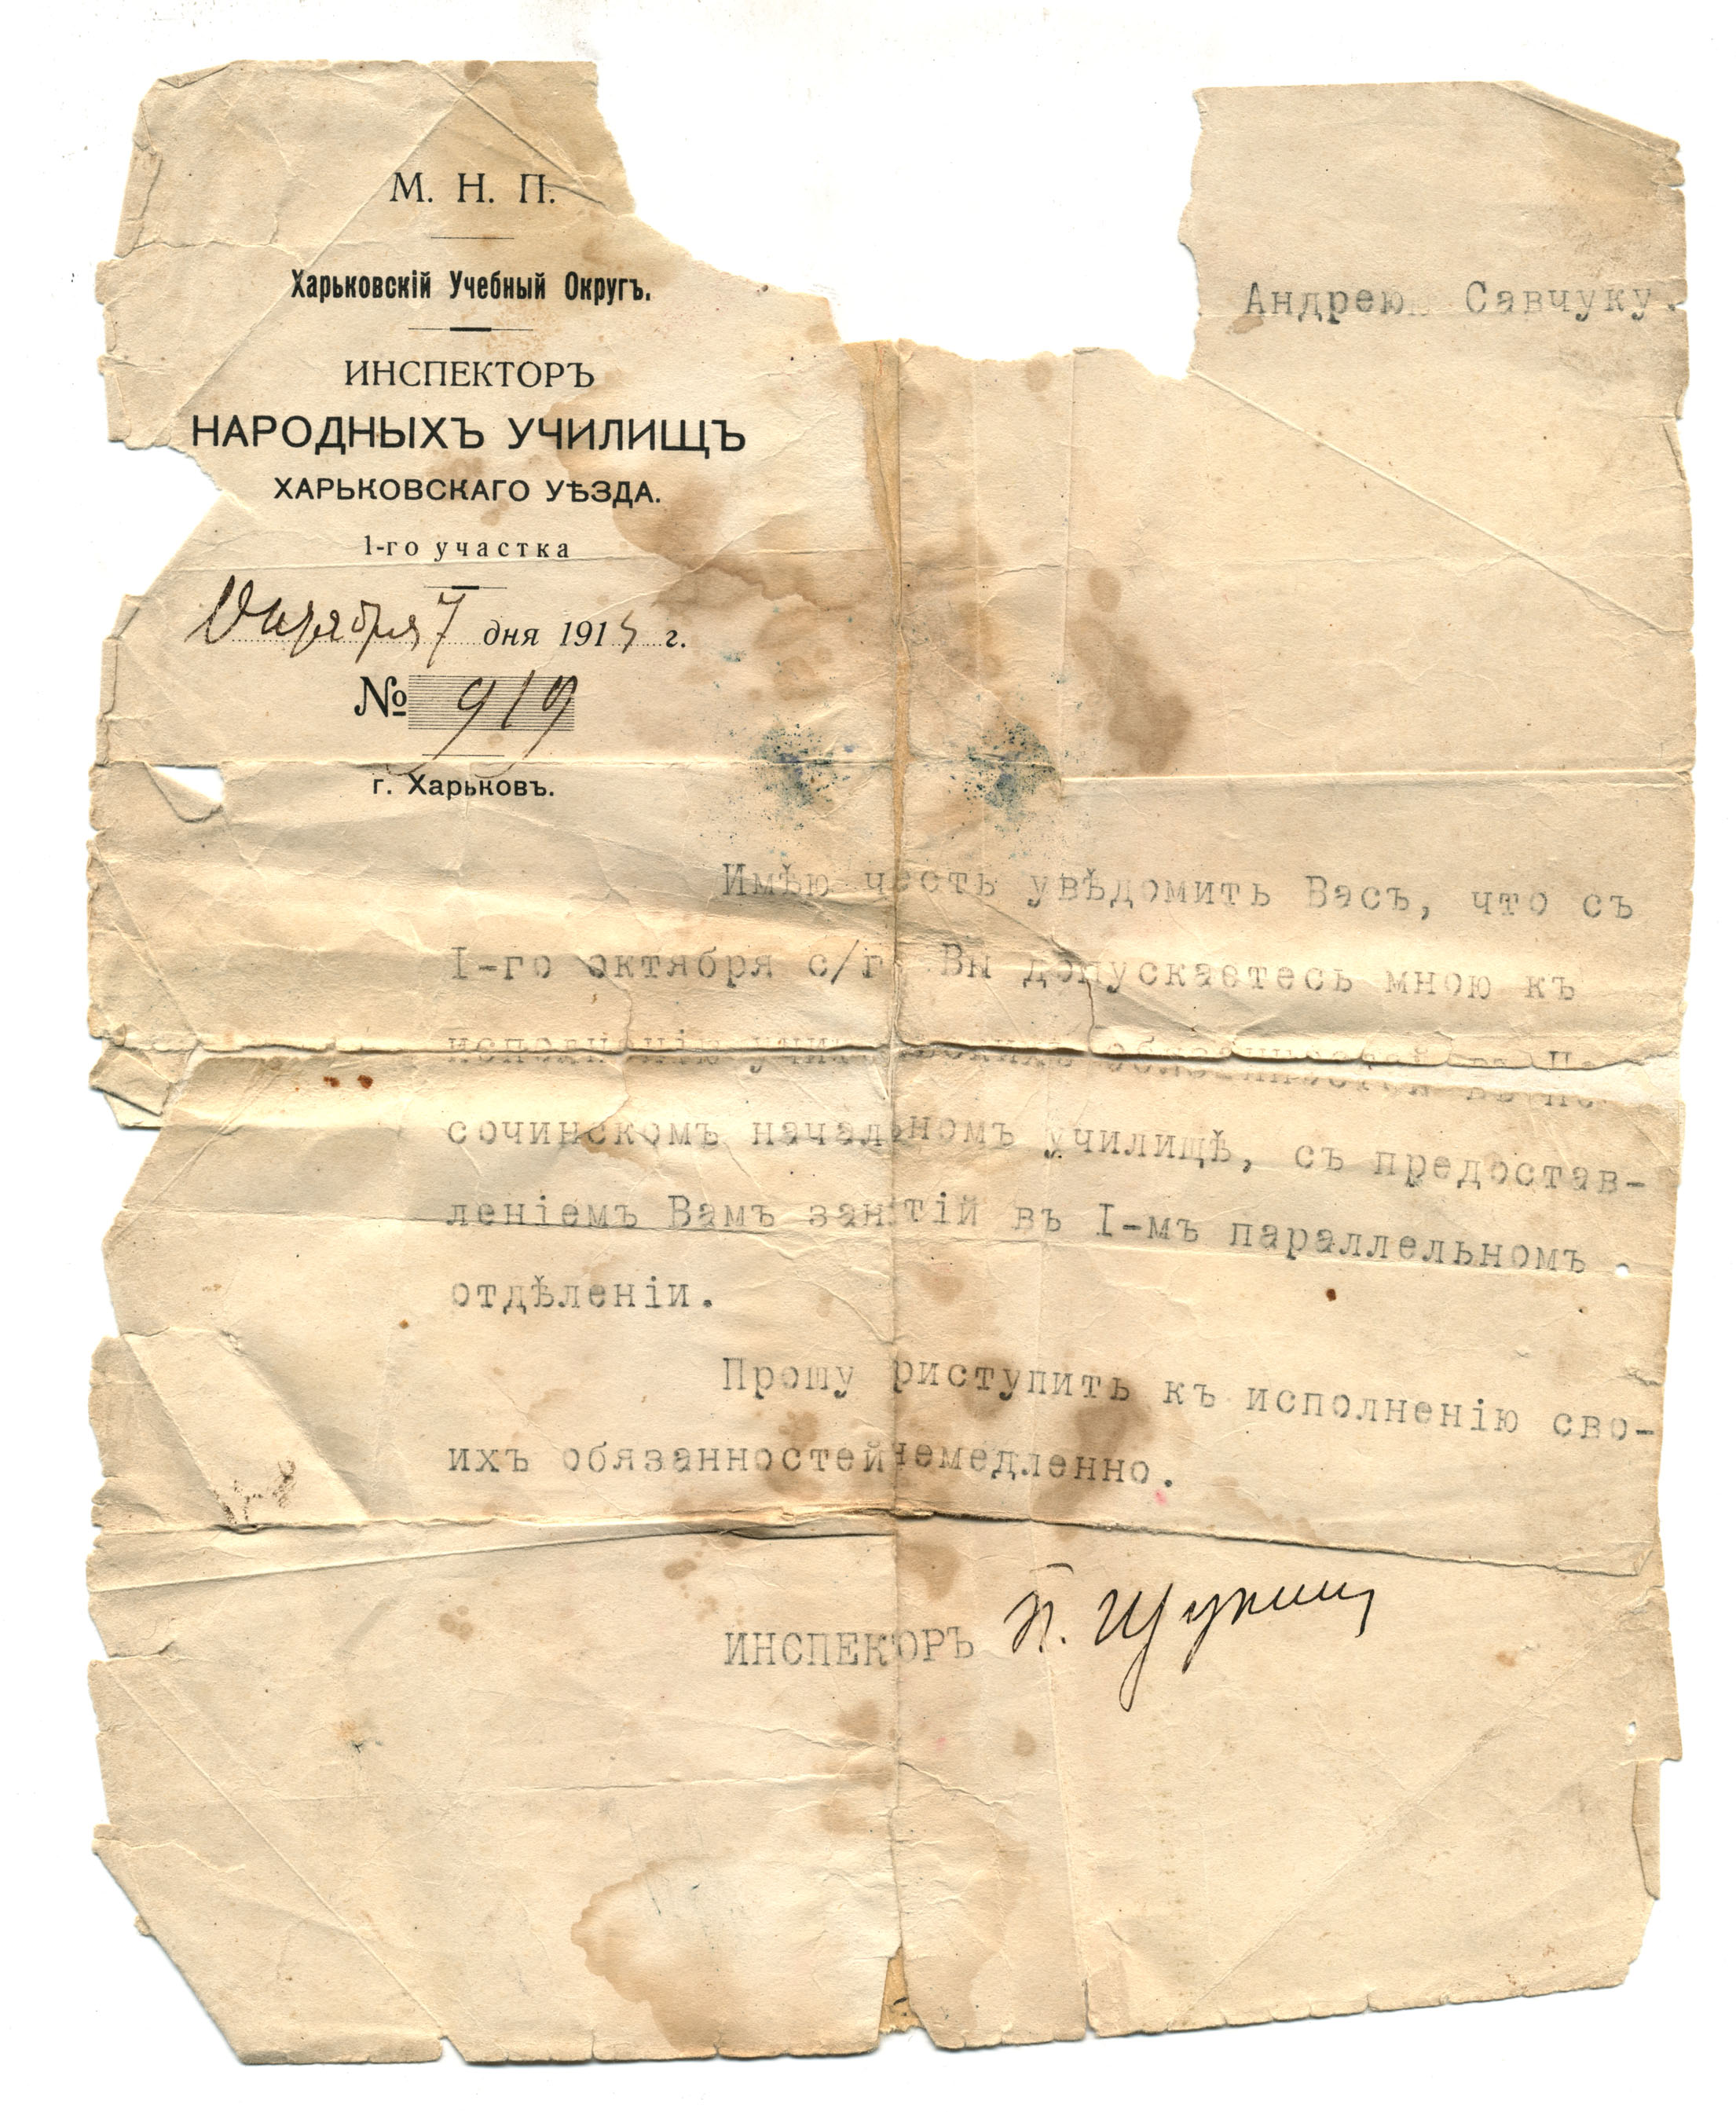 М. Н. П.
Харьковскій Учебный Округъ.
ИНСПЕКТОРЪ
НАРОДНЫХЪ УЧИЛИЩЪ
ХАРЬКОВСКАГО УѢЗДА.
1-го участка
Октября 7 дня 1915 г.
№ 919
г. Харьковъ.
Андрею Савчуку.
Имѣю честь увѣдомить Васъ, что съ
I-го октября с/г Вы допускаетесь мною къ
исполненію учительскихъ обязанностей въ Пе-
сочинскомъ начальномъ училищѣ, съ предостав-
леніемъ Вамъ занятій въ I-мъ параллельномъ
отдѣленіи.
Прошу риступить къ исполненію сво-
ихъ обязанностей немедленно.
ИНСПЕКОРЪ П. Щукин